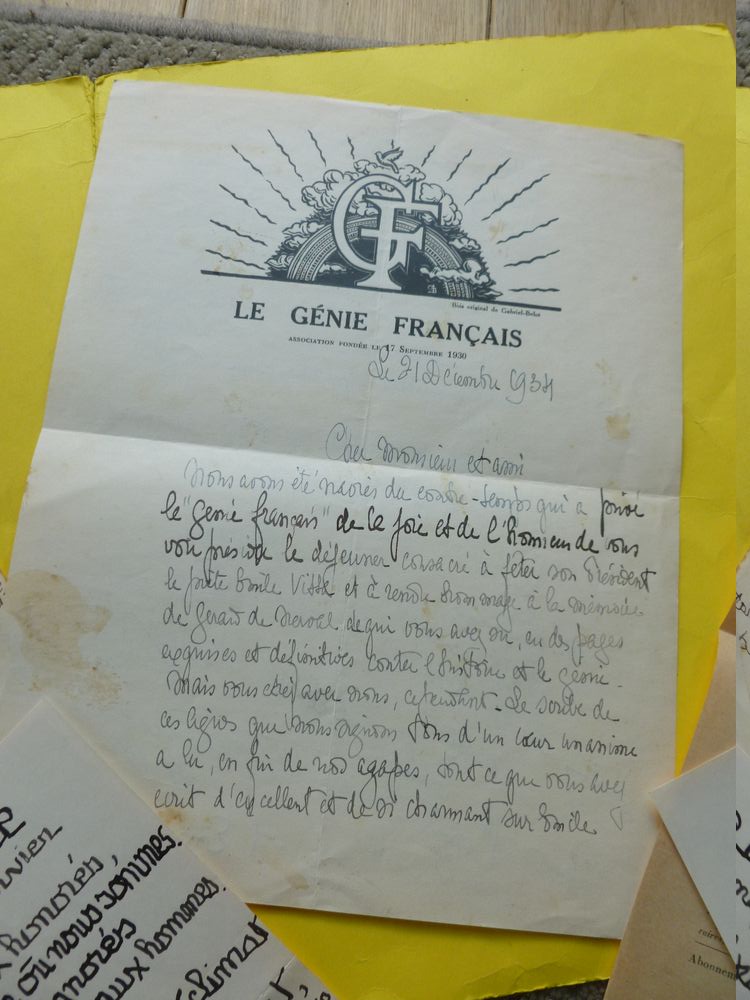 GF
Bois original de Gabriel-Belot
LE GÉNIE FRANÇAIS
ASSOCIATION FONDÉE LE 17 SEPTEMBRE 1930
Le 21 Décembre 1934
Cher Monsieur et ami
Nous avons été navrés du contre-temps qui a privé
le "Génie français" de la joie et de l'honneur de vous
voir présider le déjeuner consacré à fêter son Président
le poète Emile et à rendre hommage à la mémoire
de Gérard de Nerval de qui vous avez su, en des pages
exquises et définitives conter l'histoire et le génie.
Mais vous étiez avec nous, cependant. Le scribe de
ces lignes que nous signons tous d'un cœur unanime
a lu, en fin de nos agapes, tout ce que vous avez
écrit d'excellent et de si charmant sur Emile
honorés,
où nous sommes.
aux hommes.
climat
Abonnem